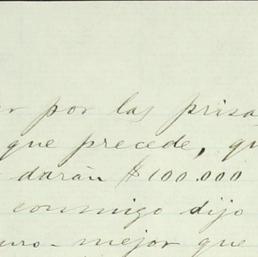 por las prisa
que precede, qu
darán $100.000
conmigo dijo
mejor que